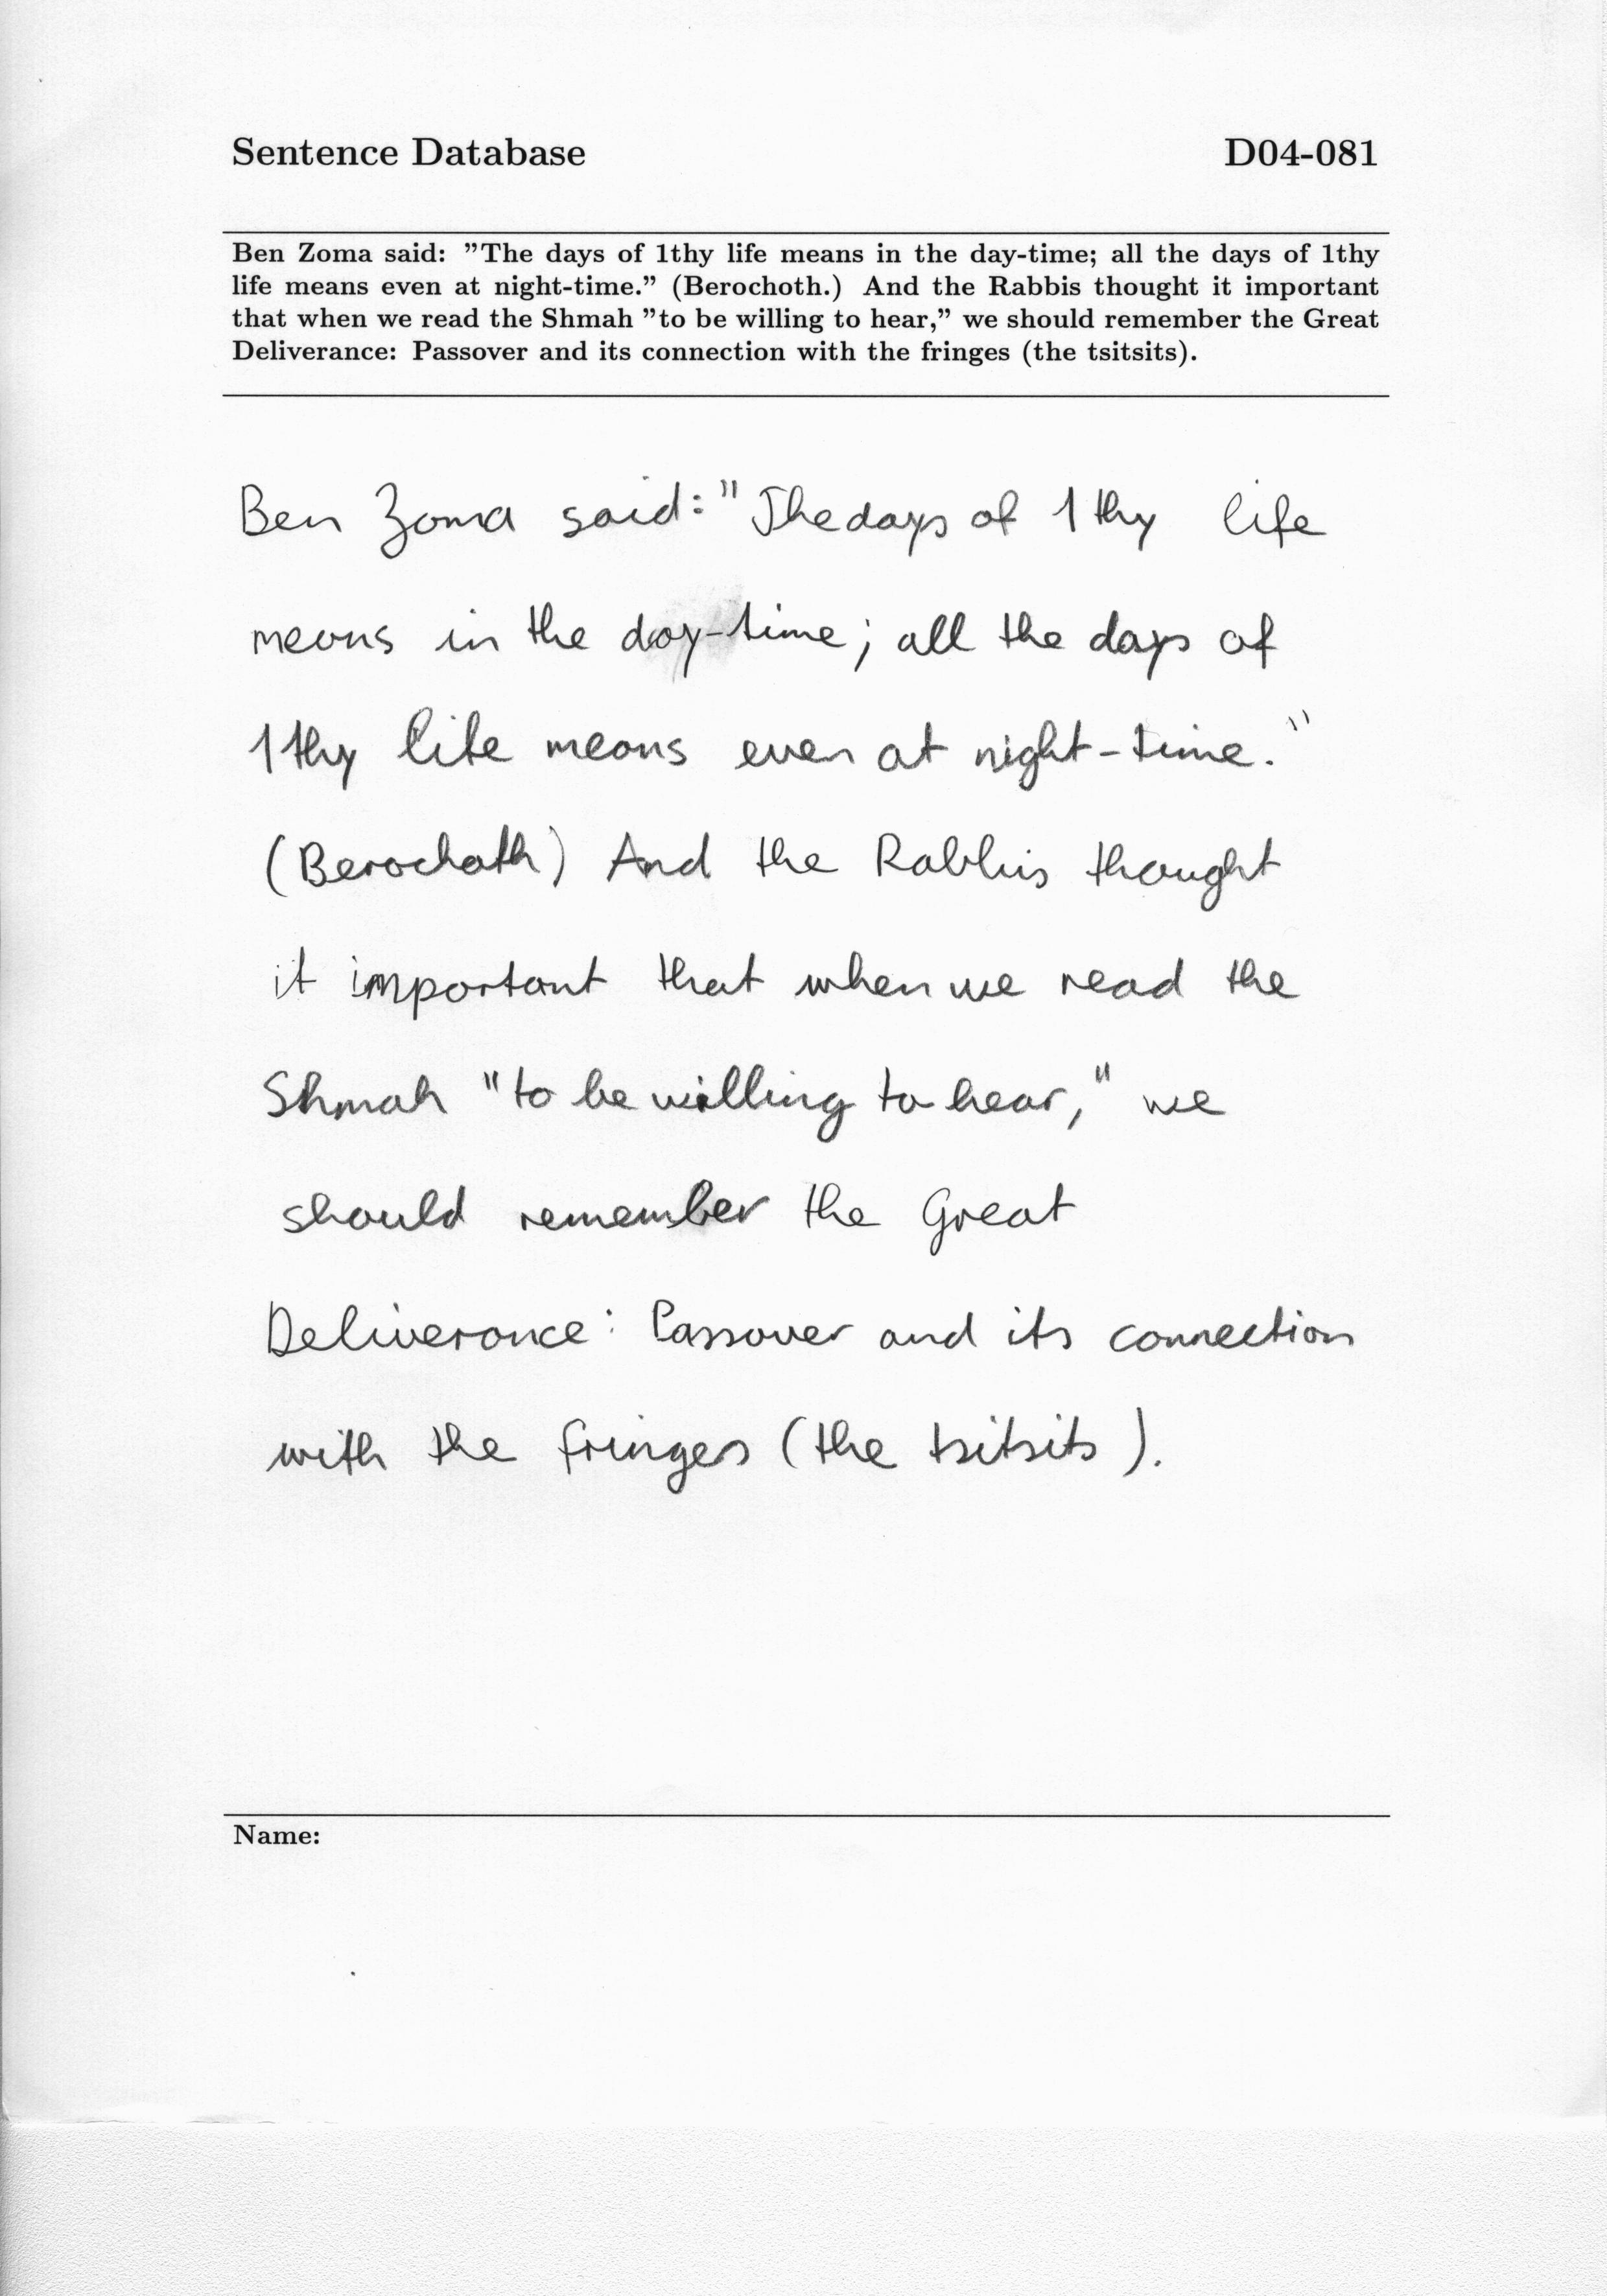 Sentence Database D04-081
Ben Zoma said: "The days of 1thy life means in the day-time; all the days of 1thy
life means even at night-time." (Berochoth.) And the Rabbis thought it important
that when we read the Shmah "to be willing to hear," we should remember the Great
Deliverance: Passover and its connection with the fringes (the tsitsits).
Ben Zoma said: "The days of 1thy life
means in the day-time; all the days of
1thy life means even at night-time."
(Berochoth) And the Rabbis thought
it important that when we read the
Shmah "to be willing to hear," we
should remember the Great
Deliverance: Passover and its connection
with the fringes (the tsitsits).
Name: